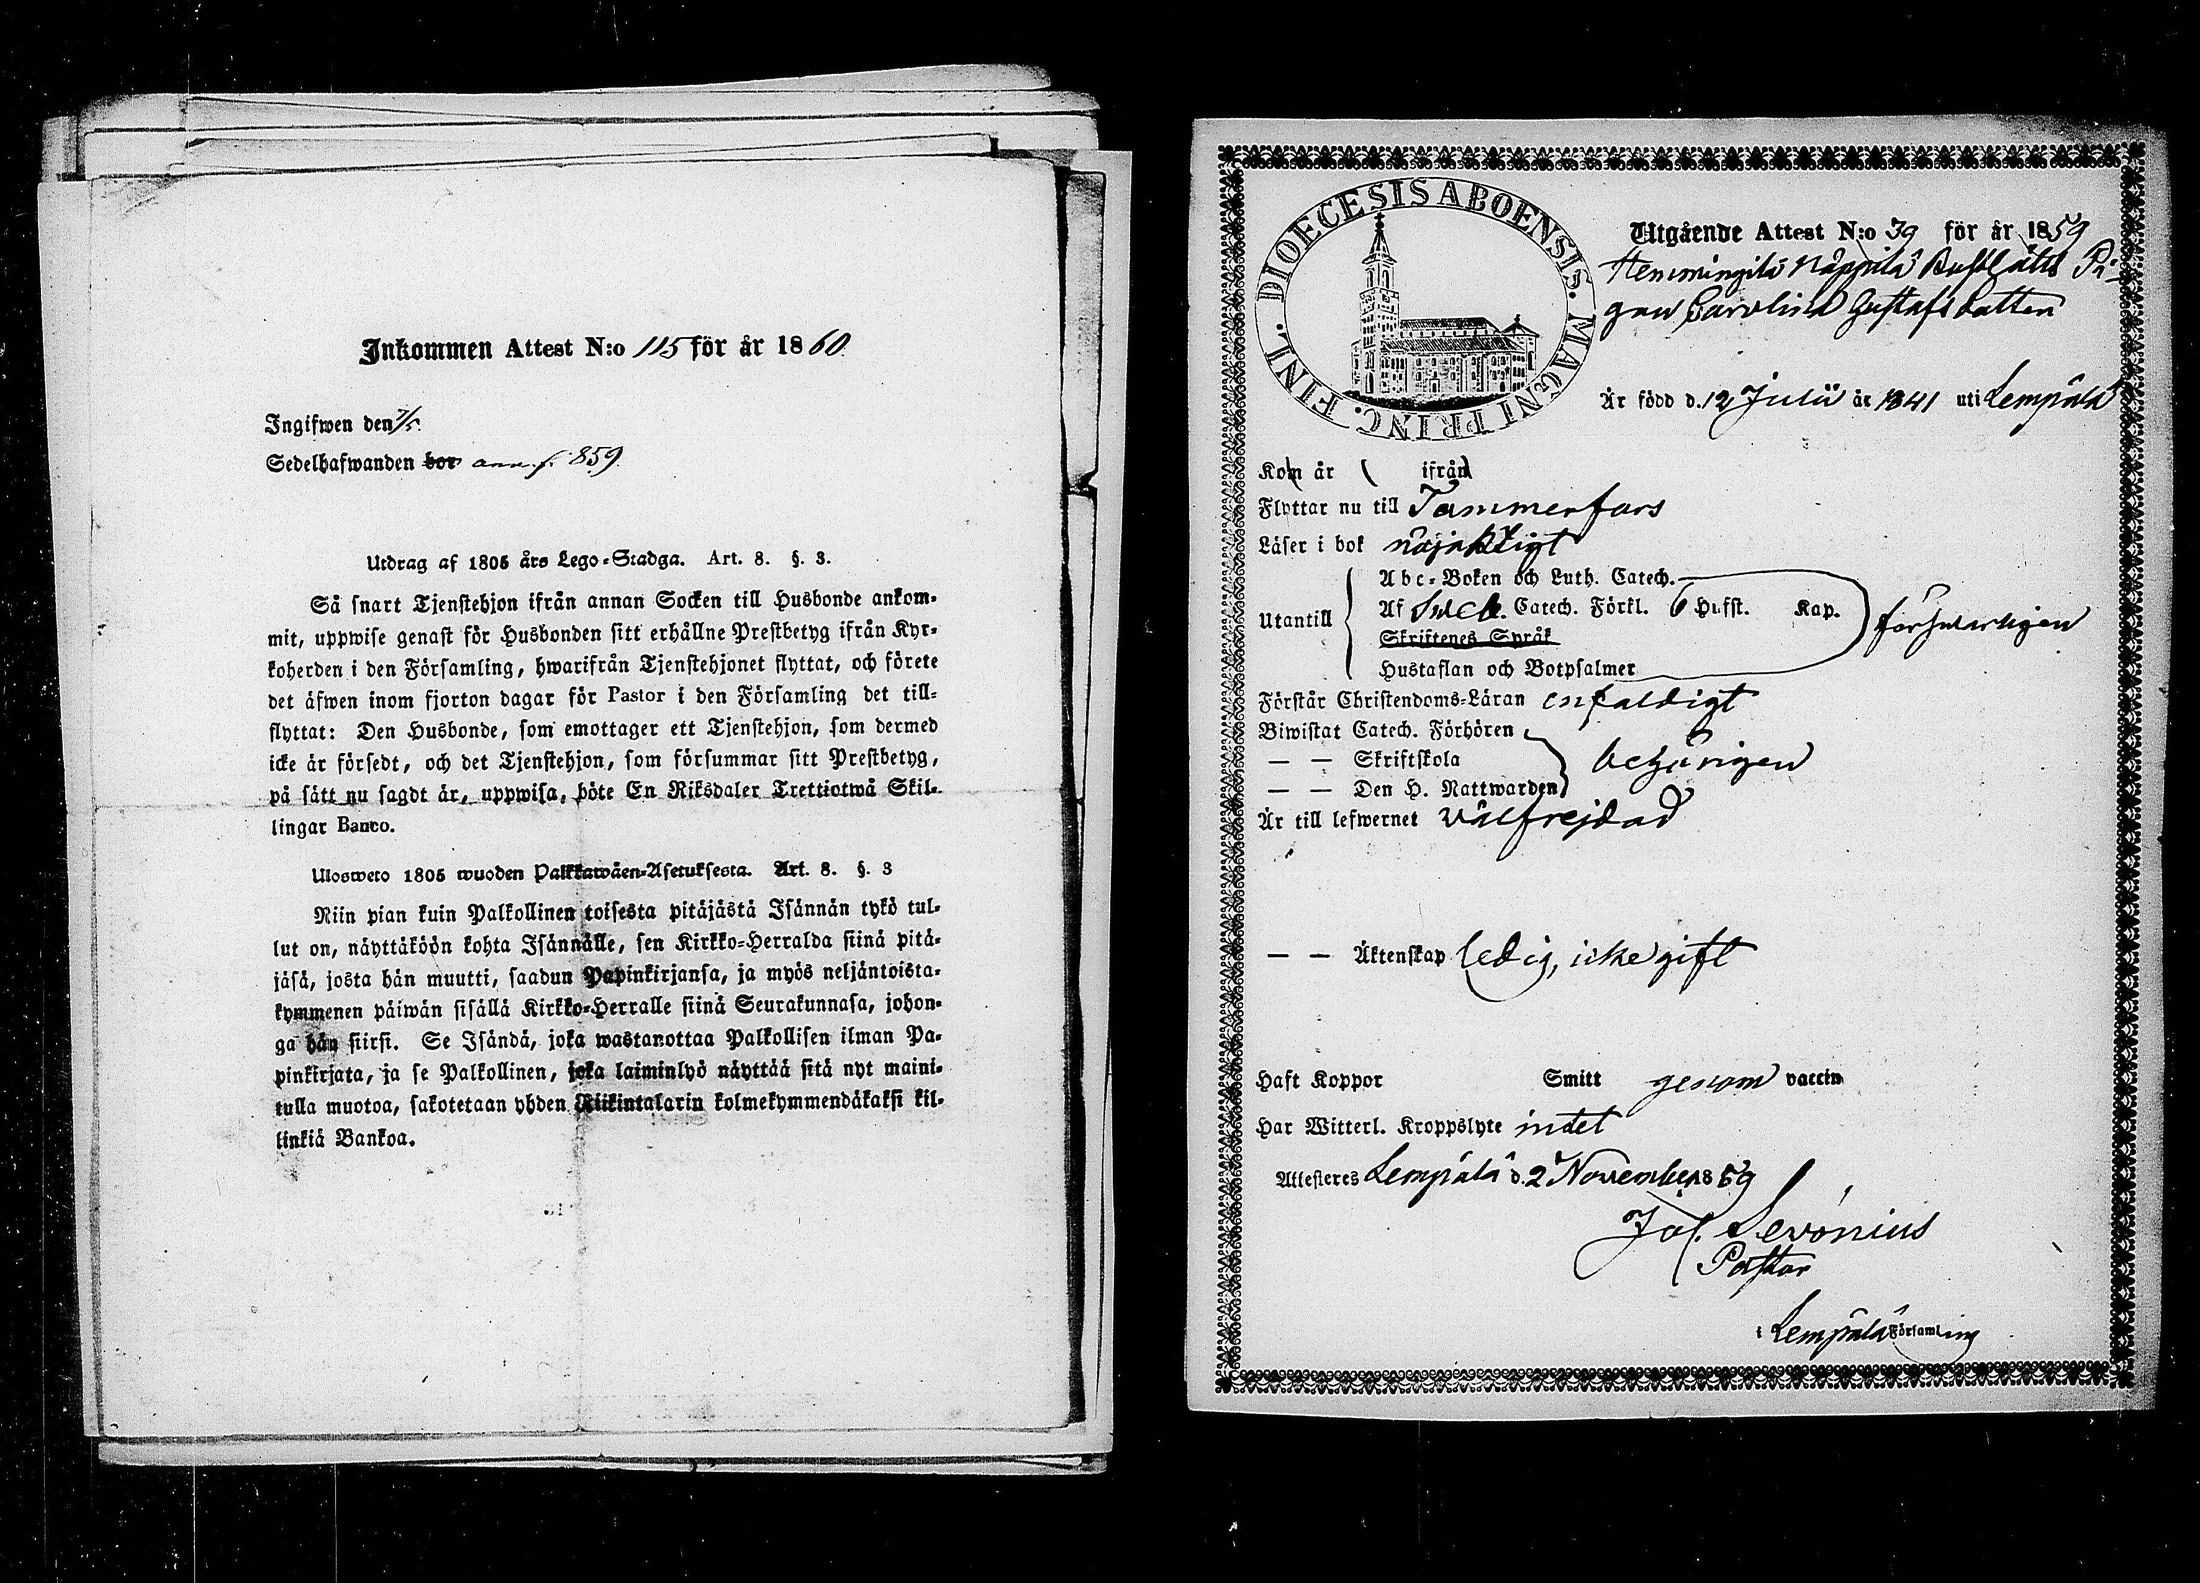 Inkommen Attest N:o 115 för år 1860.
Ingifwen den 7/5.
Sedelhafwanden bor ann. f. 859.
Utdrag af 1805 års Lego-Stadga. Art. 8. §. 3.
Så snart Tjenstehjon ifrån annan Socken till Husbonde ankom-
mit, uppwise genast för Husbonden sitt erhållne Prestbetyg ifrån Kyr-
koherden i den Församling, hwarifrån Tjenstehjonet flyttat, och förete
det äfwen inom fjorton dagar för Pastor i den Församling det till-
flyttat: Den Husbonde, som emottager ett Tjenstehjon, som dermed
icke är försedt, och det Tjenstehjon, som försummar sitt Prestbetyg,
på sätt nu sagdt är, uppwisa, böte En Riksdaler Trettiotwå Skil-
lingar Banco.
Ulosweto 1805 wuoden Palkkawäen-Asetuksesta. Art. 8. §. 3
Niin pian kuin Palkollinen toisesta pitäjästä Isännän tykö tul-
lut on, näyttäköön kohta Isännälle, sen Kirkko-Herralda siinä pitä-
jäsä, josta hän muutti, saadun Papinkirjansa, ja myös neljäntoista-
kymmenen päiwän sisällä Kirkko-Herralle siinä Seurakunnasa, johon-
ga hän siirsi. Se Isändä, joka wastanottaa Palkollisen ilman Pa-
pinkirjata, ja se Palkollinen, joka laiminlyö näyttää sitä nyt maini-
tulla muotoa, sakotetaan yhden Riikintalarin kolmekymmendäkaksi kil-
linkiä Bankoa.
DIOECESIS ABOENSIS. MAGNI PRINC. FINL.
Utgående Attest N:o 39 för år 1859
Hemmingilä Näppilä Pi-
gan Carolina Gustafsdotter
Är född d. 12 Julii år 1841 uti Lempälä
Kom år ifrån
Flyttar nu till Tammerfors
Läser i bok nöjaktigt
Utantill
Abc-Boken och Luth. Catech.
Af Sweb. Catech. Förkl. 6 Hufst. Kap.
Skriftenes Språk
Hustaflan och Botpsalmer
försvarligen
Förstår Christendoms-Läran enfaldigt
Biwistat Catech. Förhören
— — Skriftskola
— — Den H. Nattwarden
behörigen
Är till lefwernet välfrejdad
— — Äktenskap ledig, icke gift
Haft Koppor Smitt genom vaccin
Har Witterl. Kroppslyte intet
Attesteres Lempälä d. 2 November 1859
Jos. Sevonius
Pastor
i Lempälä Församling